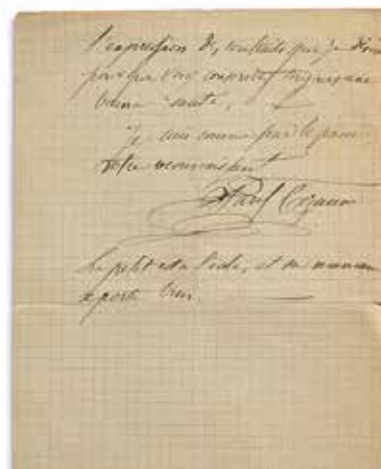 l'expression des souhaits que je désire
pour que vous conserviez toujours une
bonne santé,
Je suis comme par le passé
votre reconnaissant
Paul Cezanne
Le petit est à l'école, et sa maman
se porte bien.